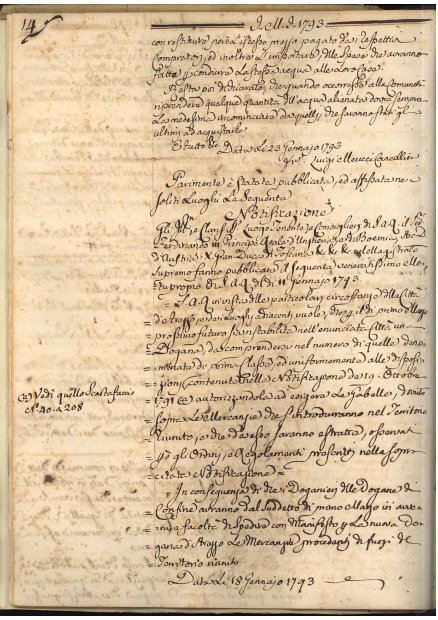 14
J. M. J. 1793
con restituire però lo stesso prezzo pagato da i respettivi
Compratori, ed inoltre l'importare delle spese che avranno
fatte per condurre la stessa acqua alle loro Case
Resta poi dichiarato, che quando occorresse alla Comunità
riprendere qualque quantità dell'acqua alienata dovrà sempre
la medesima incominciare da quelli, che saranno stati gli
ultimi ad acquistarle
E tutto
Data li 23 Gennajo 1793
Luigi Meucci Cancellier
Parimente è stata pubblicata, ed affissata ne
soliti Luoghi la seguente
Notificazione
Gl' Luogo Tenente, e Consiglieri di S. A. R. il
Ferdinando III Principe Reale d'Ungheria, e di Boemia,
d'Austria, Gran-Duca di Toscana &c. &c. &c. e del Magistrato
Supremo fanno pubblicare il seguente veneratissimo Mo-
tuproprio di S. A. R. del dì 11 Gennajo 1793
S. A. R. in vista delle particolari circostanze della Città
d'Arezzo, e dei Luoghi adiacenti vuole, che per il dì primo Maggio
prossimo futuro sia ristabilita nell'enunciata Città un
Dogana, da comprendersi nel numero di quelle deno-
minate di prima Classe, ed uniformemente alle disposi-
zioni contenute nella Notificazione de' 19. Ottobre
1791 autorizzandola ad esigere le Gabelle, tanto
sopra le Mercanzie che s'introdurranno nel Territorio
riunito, che da esso saranno estratte, osservati
gli Ordini, e Regolamenti prescritti nella som-
citata Notificazione
In conseguenza di che i Doganieri delle Dogane di
Confine avranno dal suddetto dì primo Maggio in avve-
nire facoltà di spedire con Manifesto per la nuova do-
gana d'Arezzo le Mercanzie procedenti di fuori de
Territorio riunito
Data li 18 Gennajo 1793
Vedi quello
No. 40. a 208